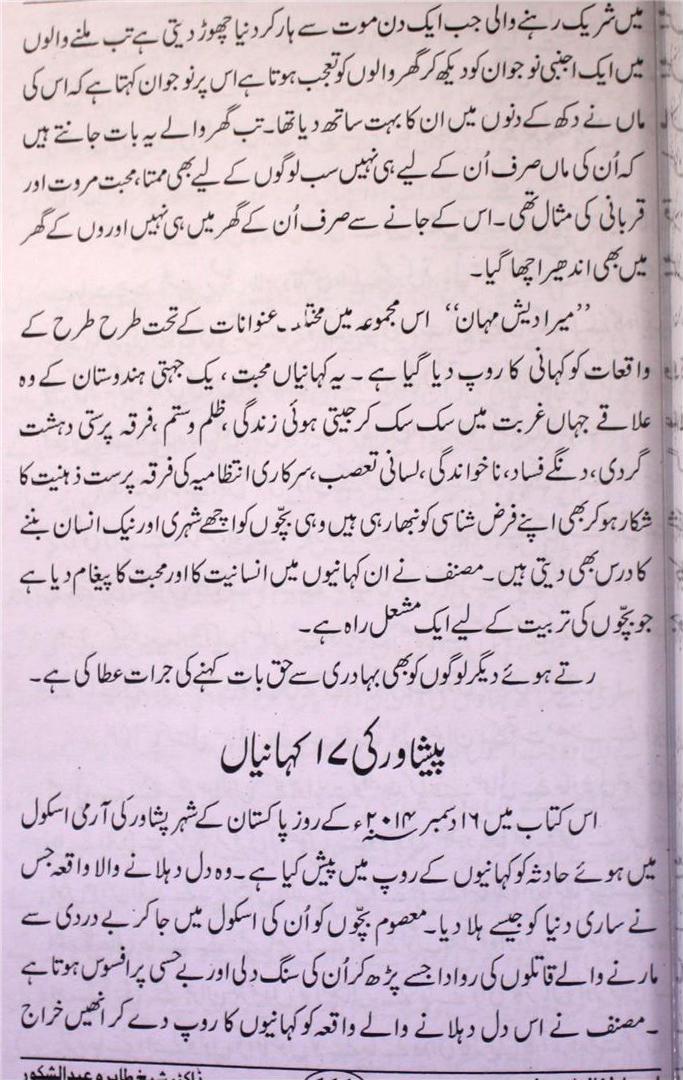 میں شریک رہنے والی جب ایک دن موت سے ہار کر دنیا چھوڑ دیتی ہے تب ملنے والوں
میں ایک اجنبی نوجوان کو دیکھ کر گھر والوں کو تعجب ہوتا ہے اس پر نوجوان کہتا ہے کہ اس کی
ماں نے دکھ کے دنوں میں ان کا بہت ساتھ دیا تھا۔ تب گھر والے یہ بات جانتے ہیں
کہ اُن کی ماں صرف اُن کے لیے ہی نہیں سب لوگوں کے لیے بھی ممتا، محبت مروت اور
قربانی کی مثال تھی۔ اس کے جانے سے صرف اُن کے گھر میں ہی نہیں اوروں کے گھر
میں بھی اندھیرا چھا گیا۔
”میرا دیش مہان“ اس مجموعہ میں مختلف عنوانات کے تحت طرح طرح کے
واقعات کو کہانی کا روپ دیا گیا ہے۔ یہ کہانیاں محبت، یک جہتی ہندوستان کے وہ
علاقے جہاں غربت میں سک سک کر جیتی ہوئی زندگی، ظلم و ستم، فرقہ پرستی دہشت
گردی، دنگے فساد، ناخواندگی، لسانی تعصب، سرکاری انتظامیہ کی فرقہ پرست ذہنیت کا
شکار ہو کر بھی اپنے فرض شناسی کو نبھا رہی ہیں وہی بچّوں کو اچھے شہری اور نیک انسان بننے
کا درس بھی دیتی ہیں۔ مصنف نے ان کہانیوں میں انسانیت کا اور محبت کا پیغام دیا ہے
جو بچّوں کی تربیت کے لیے ایک مشعل راہ ہے۔
رتے ہوئے دیگر لوگوں کو بھی بہادری سے حق بات کہنے کی جرات عطا کی ہے۔
پیشاور کی ۱۷ کہانیاں
اس کتاب میں ۱۶ دسمبر ۲۰۱۴ء کے روز پاکستان کے شہر پشاور کی آرمی اسکول
میں ہوئے حادثہ کو کہانیوں کے روپ میں پیش کیا ہے۔ وہ دل دہلانے والا واقعہ جس
نے ساری دنیا کو جیسے ہلا دیا۔ معصوم بچّوں کو اُن کی اسکول میں جا کر بے دردی سے
مارنے والے قاتلوں کی روداد جسے پڑھ کر اُن کی سنگ دلی اور بے حسی پر افسوس ہوتا ہے
۔ مصنف نے اس دل دہلانے والے واقعہ کو کہانیوں کا روپ دے کر انھیں خراج
ڈاکٹر شیخ طاہرہ عبدالشکور